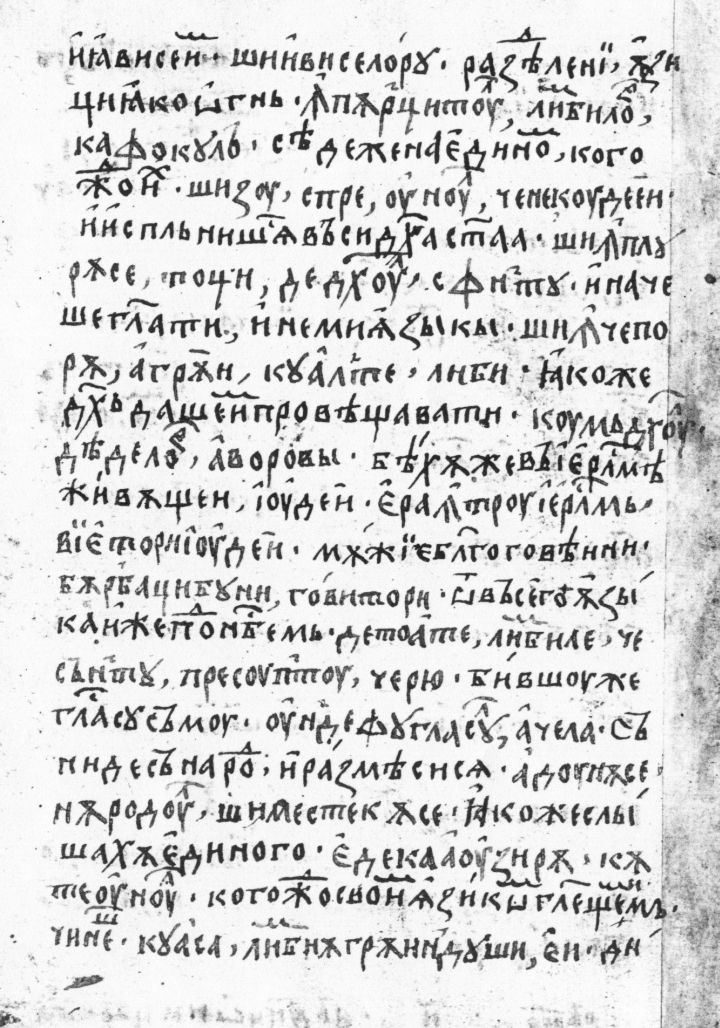 и҆ꙗвисеⷨи҆ · шиивиселорꙋ · разⷣѣленїи, ѧ҆зи
циꙗкоѡ҆гнь · ꙟпѫрцитоуⷧ, лиⷨбилоⷬ,
кафокꙋль · сѣдеженаединоⷨ, кого
жⷣои҆ · шизоу, спре, оу҆ноуⷧ, ченекоудееи ·
и҆испльнишѫⷭвъсидх҃астаа · шиꙟплꙋ
рѫсе, тоци, дедх҃оуⷧ, сфнтꙋ · иначе
шегл҃ати, и҆немиѧзыкы · шиꙟчепо
рѫ, а҆грѫи, куалте, либи · ꙗкоже
дх҃ьдашеи҆провѣщавати · коумьдх҃оуⷧ
дѣделоⷬ, а҆воровы · бѣхѫжевъіер҃лмѣ
живѫщеи, і҆оуⷣеи · ера ꙟтроуіер҃лмь,
вїеториіоуⷣеи · мѫжїебл҃гоговѣини ·
бѫрбацибꙋни, говитори · ѿвъсегоѧзы
каи҆жепоⷣнб҃емь · детоате, лиⷨбиле, че
сънтꙋ, пресоуптоу, черю · бившоуже
гла́сꙋсъмоу · оу҆ндефꙋгласꙋⷧ, ачела · съ
нидесънароⷣ, и҆размѣсися · адоунѫсе,
нѫродоуⷧ, шиместекѫсе · ꙗкожеслы
шахѫединого · едекаа҆оузирѫ · кѫ
теоу҆ноуⷧ · когожⷣосвоиⷨѧзикѡⷨгл҃ещеⷨмь ·
чинеⷲ · куаса, лиⷨбиѫгрѫиндꙋши, еи · ди